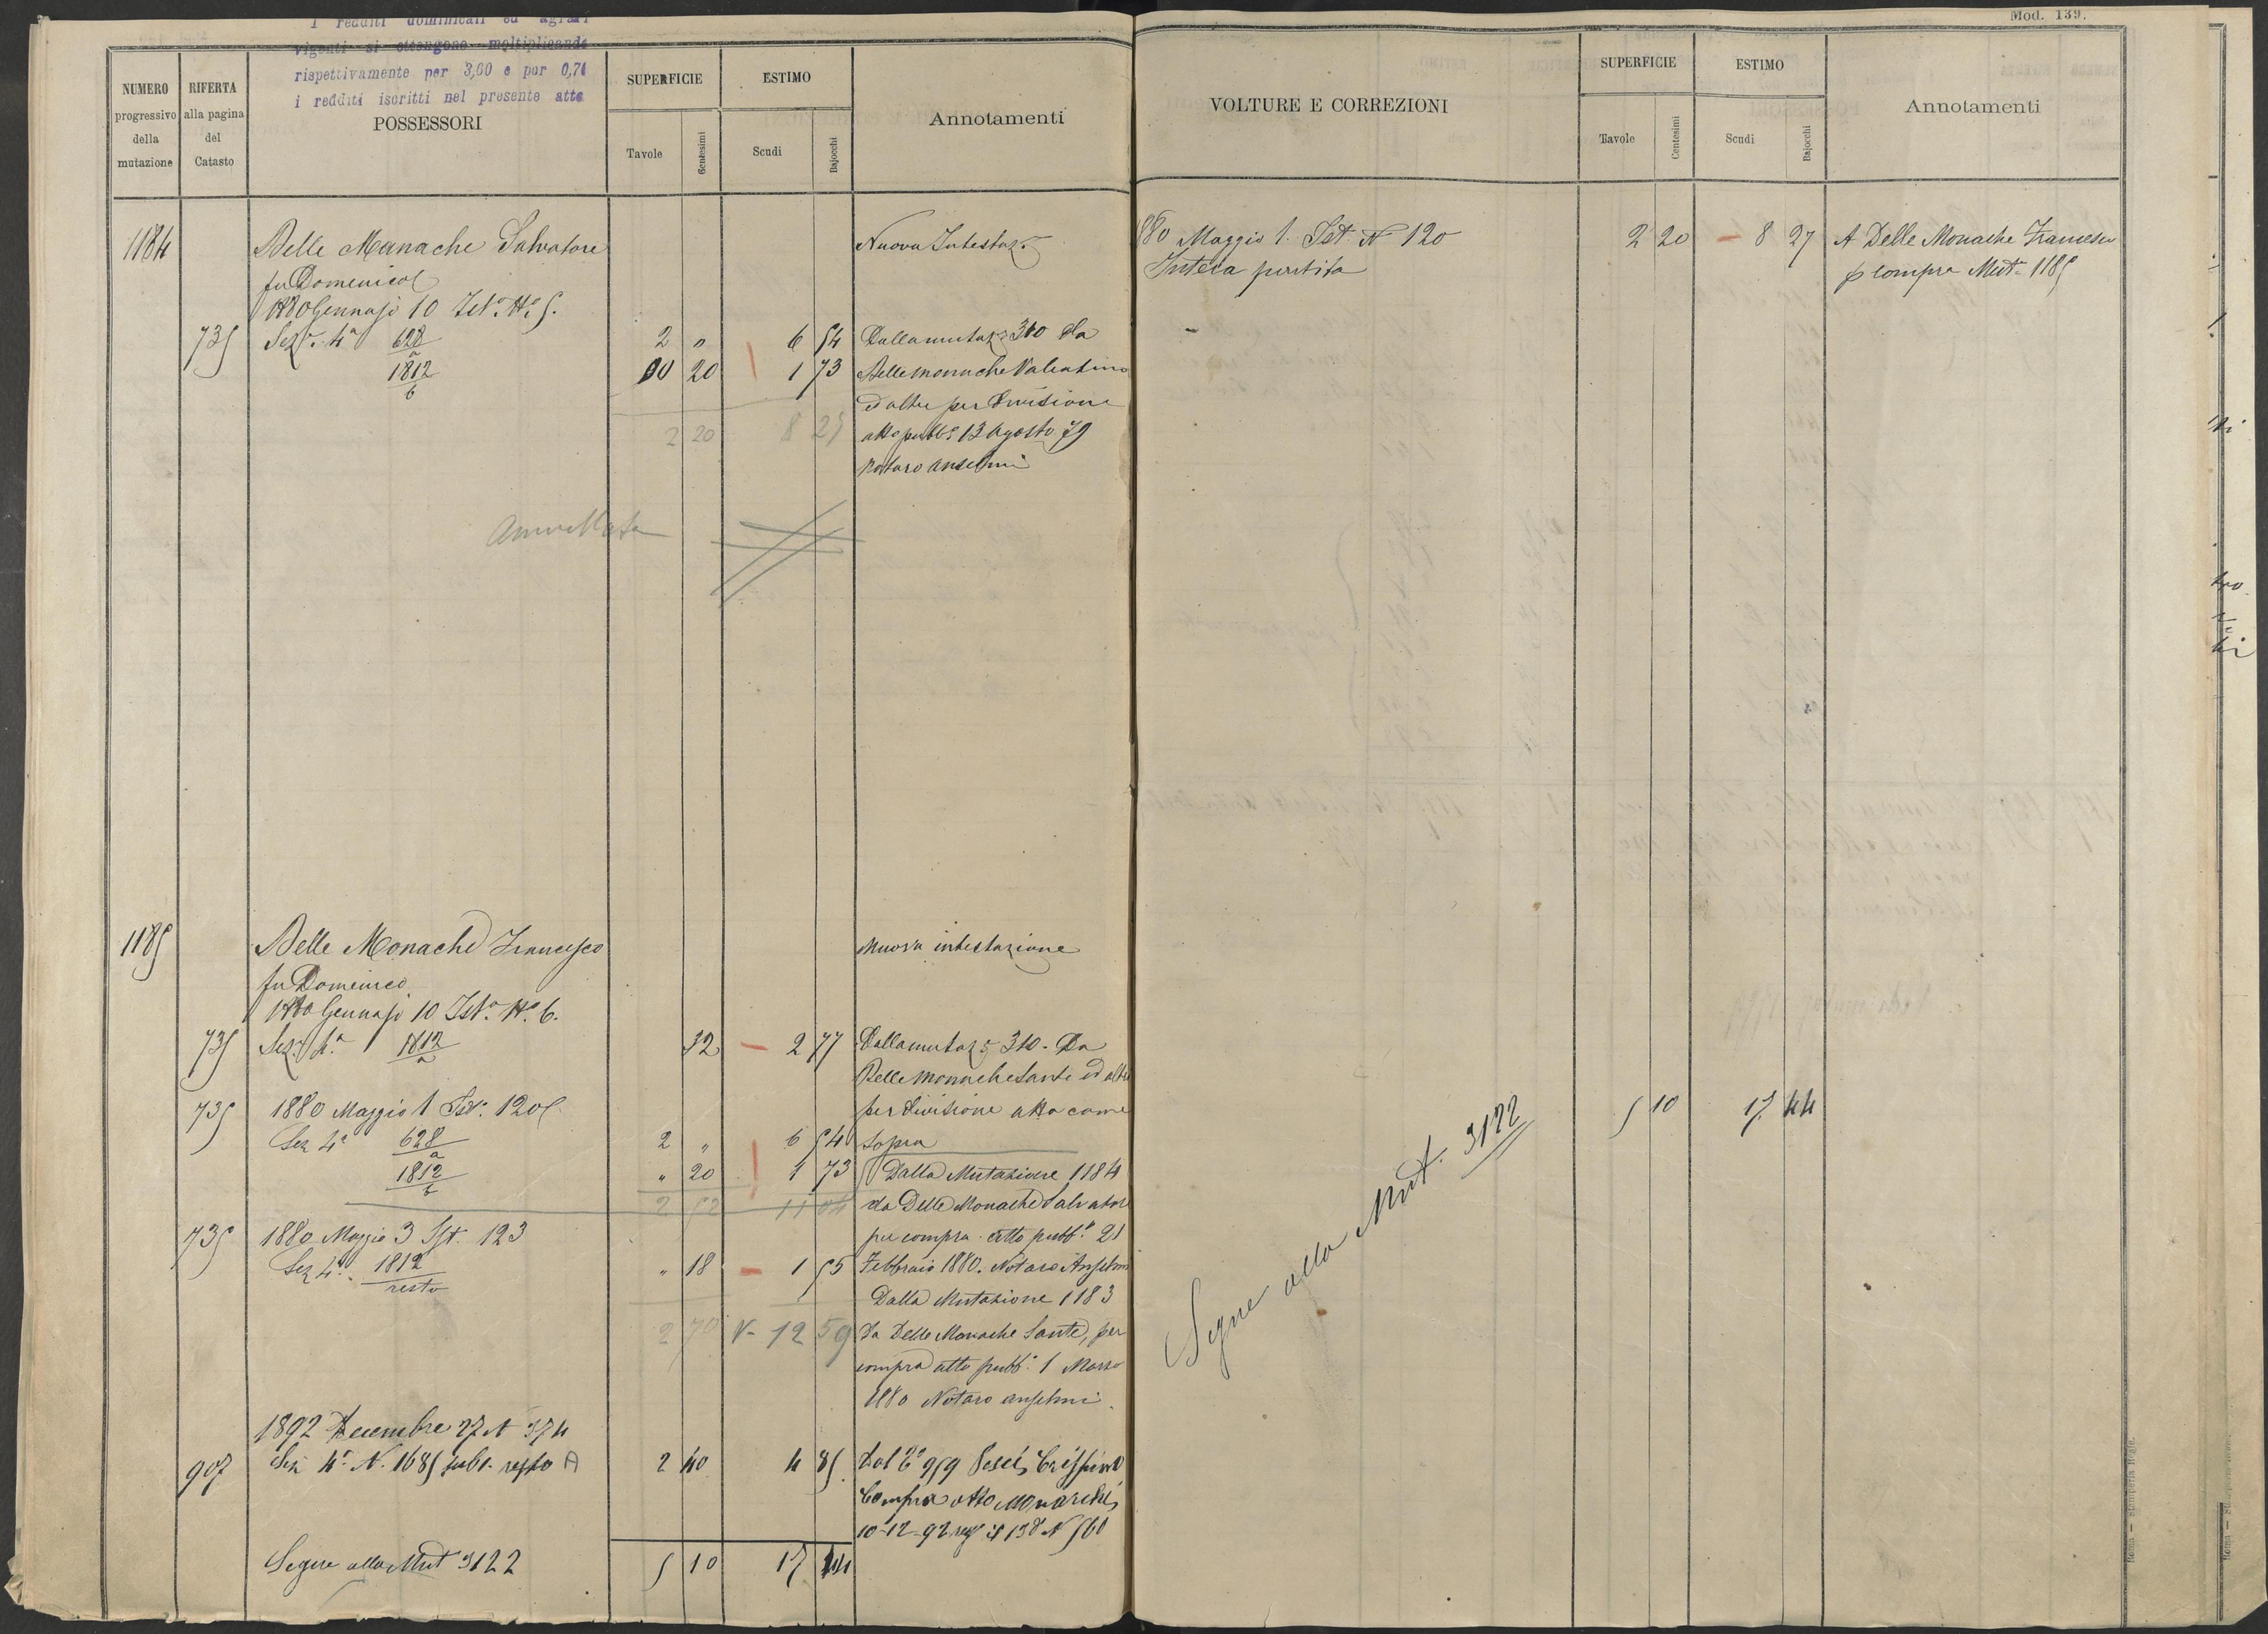 I redditi dominicali ed agrari
vigenti si ottengono moltiplicando
rispettivamente per 3,60 e per 0,71
i redditi iscritti nel presente atto
Mod. 139.
NUMERO progressivo della mutazione
RIFERTA alla pagina del Catasto
POSSESSORI
SUPERFICIE
Tavole
Centesimi
ESTIMO
Scudi
Bajocchi
Annotamenti
VOLTURE E CORREZIONI
SUPERFICIE
Tavole
Centesimi
ESTIMO
Scudi
Bajocchi
Annotamenti
1184 Delle Monache Salvatore Nuova Intestaz.e
fu Domenico
1880 Gennajo 10 Ist.a N.o 5.
735 Sez.e 4a 628/a 2 " 6 54 Dalla mutaz.e 310 Da
1812/b 00 20 1 73 Delle Monache Valentino
ed altri per divisione
2 20 8 27 atto pubb.o 13 Agosto 79
Notaro Anselmi
Annullata
1880 Maggio 1. Ist. N 120 2 20 8 27 A Delle Monache Francesco
Intera partita p compra Mut. 1185
1185 Delle Monache Francesco Nuova intestazione
fu Domenico
1880 Gennajo 10 Ist.a N.o 6.
735 Sez.e 4.a 1812/a 32 2 77 Dalla mutaz.e 310. Da
Delle Monache Sante ed altri
735 1880 Maggio 1 Ist. 120 per divisione atto come
Sez 4a 628/a 2 " 6 54 sopra
1812/b " 20 1 73 Dalla Mutazione 1184
2 52 11 04 da Delle Monache Salvatore
735 1880 Maggio 3 Ist. 123 per compra atto pubb.o 21
Sez 4a 1812/resto " 18 1 55 Febbraio 1880. Notaro Anselmi
Dalla Mutazione 1183
2 70 V- 12 59 Da Delle Monache Sante, per
compra atto pubb.o 1 Marzo
1880 Notaro Anselmi.
1892 Decembre 27 N 374
907 Sez 4a N. 1685 sub 1. resto A 2 40 4 85 Dal
Compra atto
10-12-92 N 560
Segue alla Mut 3122 5 10 17 44
Segue alla Mut. 3122
5 10 17 44
Roma — Stamperia Reale.